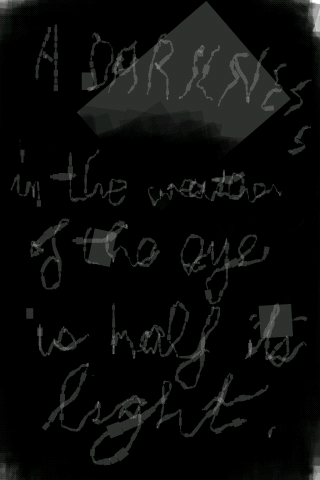 A DARKNESS
in the weather
of the eye
is half its
light.